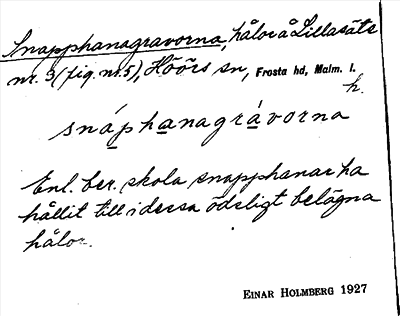 Snapphanagravorna, hålor å Lillasäte
nr. 3 (fig. nr. 5), Höörs sn, Frosta hd, Malm. l.
h.
snáphanagrávorna
Enl. ber. skola snapphanar ha
hållit till i dessa ödsligt belägna
hålor.
EINAR HOLMBERG 1927